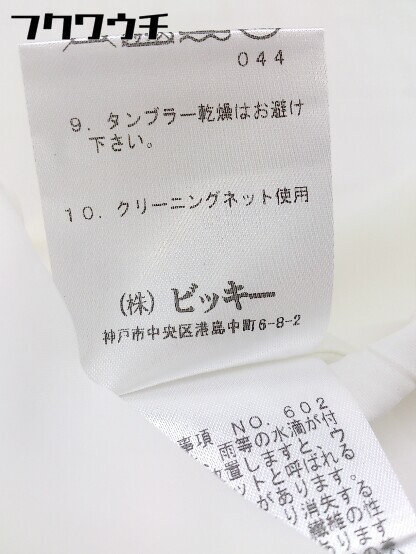 フクワウチ
044
9. タンブラー乾燥はお避け
下さい。
10. クリーニングネット使用
(株) ビッキー
神戸市中央区港島中町6-8-2
事項 NO. 602
雨等の水滴が付
置しますと、ウ
ットと呼ばれる
があります。
消失する
繊維の性